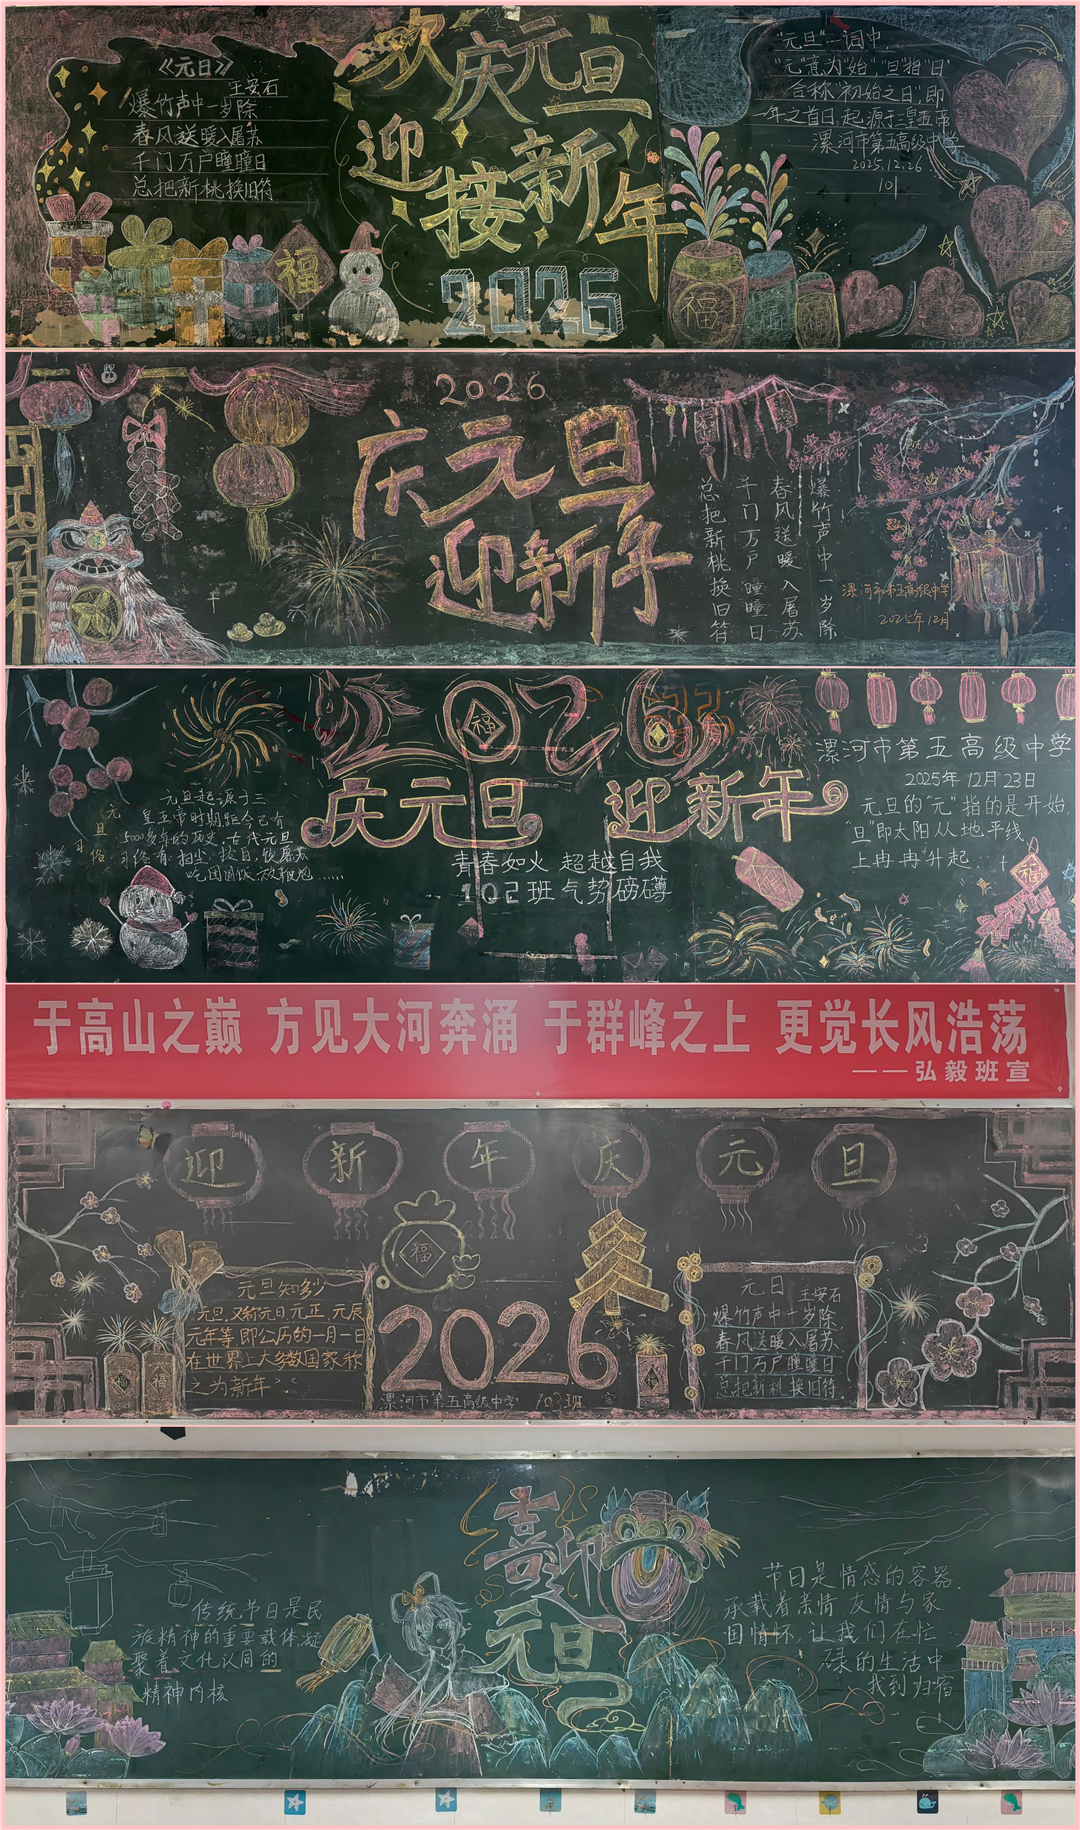 《元日》
王安石
爆竹声中一岁除
春风送暖入屠苏
千门万户曈曈日
总把新桃换旧符
欢庆元旦
迎接新年
2026
福
福
福
福
"元旦"一词中,
"元"意为"始","旦"指"日"
合称"初始之日",即
一年之首日,起源于皇五帝
漯河市第五高级中学
2025.12.26
101
2026
庆元旦
迎新年
爆竹声中一岁除
春风送暖入屠苏
千门万户曈曈日
总把新桃换旧符
漯河市第五高级中学
2025年12月
2026
福
福
庆元旦 迎新年
元旦习俗
元旦起源于三
皇五帝时期距今已有
5000多年的历史,古代元旦
习俗有:扫尘、拔自、饮屠苏
吃团圆饭、放鞭炮......
青春如火 超越自我
102班 气势磅礴
漯河市第五高级中学
2025年12月23日
元旦的"元"指的是开始,
"旦"即太阳从地平线
上冉冉升起.
福
于高山之巅 方见大河奔涌 于群峰之上 更觉长风浩荡
——弘毅班宣
迎新年庆元旦
福
元旦知多少
元旦,又称元日、元正、元辰
元年等,即公历的一月一日
在世界上大多数国家称
之为新年
福
福
2026
漯河市第五高级中学 103班 宣
福
元日
王安石
爆竹声中一岁除,
春风送暖入屠苏.
千门万户曈曈日
总把新桃换旧符.
喜迎
元旦
传统节日是民
族精神的重要载体,凝
聚着文化认同的
精神内核.
节日是情感的容器,
承载着亲情 友情与家
国情怀,让我们在忙
碌的生活中
找到归宿